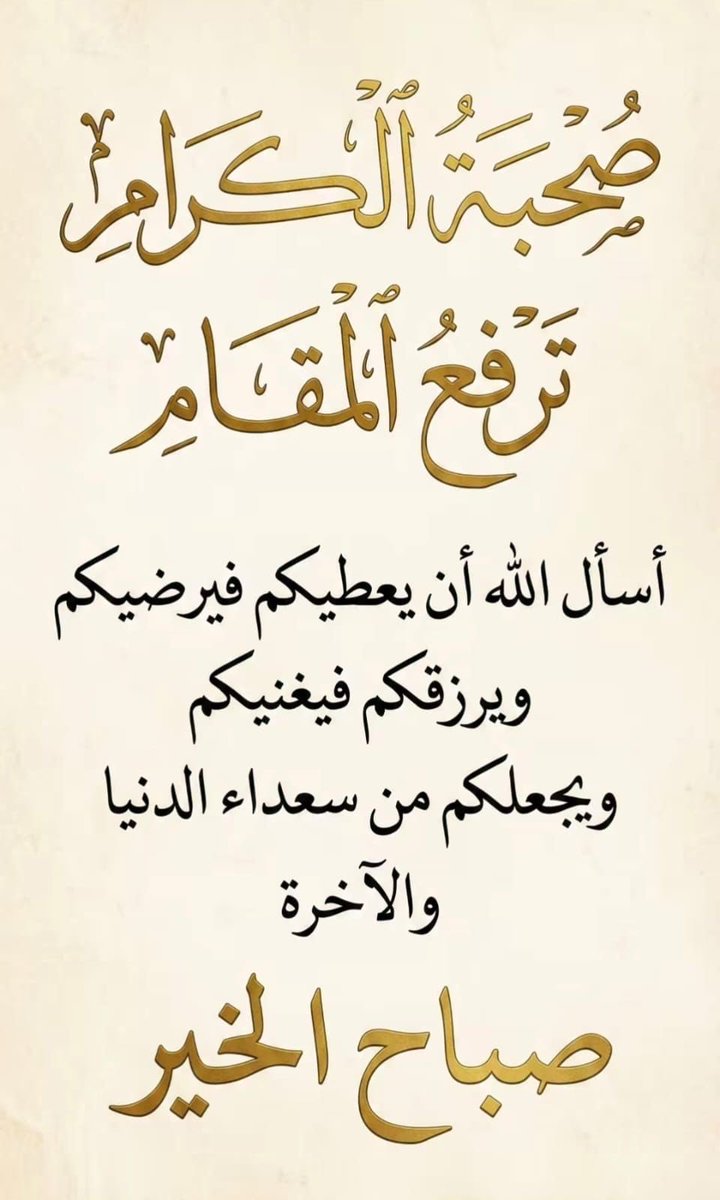 صُحْبَةُ ٱلْكَرَامِ
تَرْفَعُ ٱلْمَقَامِ
أسأل الله أن يعطيكم فيرضيكم
ويرزقكم فيغنيكم
ويجعلكم من سعداء الدنيا
والآخرة
صباح الخير